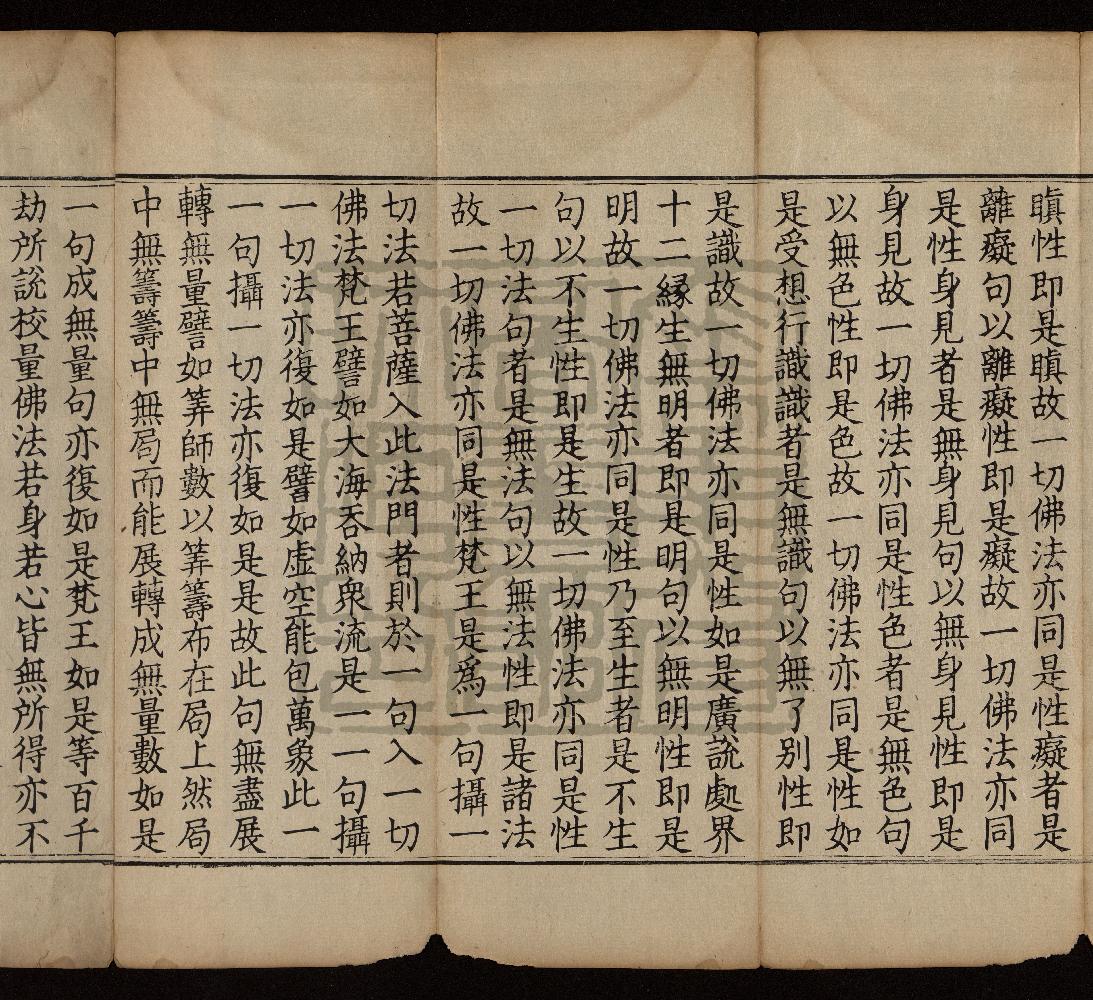 瞋性即是瞋故一切佛法亦同是性癡者是
離癡句以離癡性即是癡故一切佛法亦同
是性身見者是無身見句以無身見性即是
身見故一切佛法亦同是性色者是無色句
以無色性即是色故一切佛法亦同是性如
是受想行識識者是無識句以無了別性即
是識故一切佛法亦同是性如是廣說處界
十二縁生無明者即是明句以無明性即是
明故一切佛法亦同是性乃至生者是不生
句以不生性即是生故一切佛法亦同是性
一切法句者是無法句以無法性即是諸法
故一切佛法亦同是性梵王是爲一句攝一
切法若菩薩入此法門者則於一句入一切
佛法梵王譬如大海吞納衆流是一一句攝
一切法亦復如是譬如虛空能包萬象此一
一句攝一切法亦復如是是故此句無盡展
轉無量譬如筭師數以筭籌布在局上然局
中無籌籌中無局而能展轉成無量數如是
一句成無量句亦復如是梵王如是等百千
劫所說校量佛法若身若心皆無所得亦不